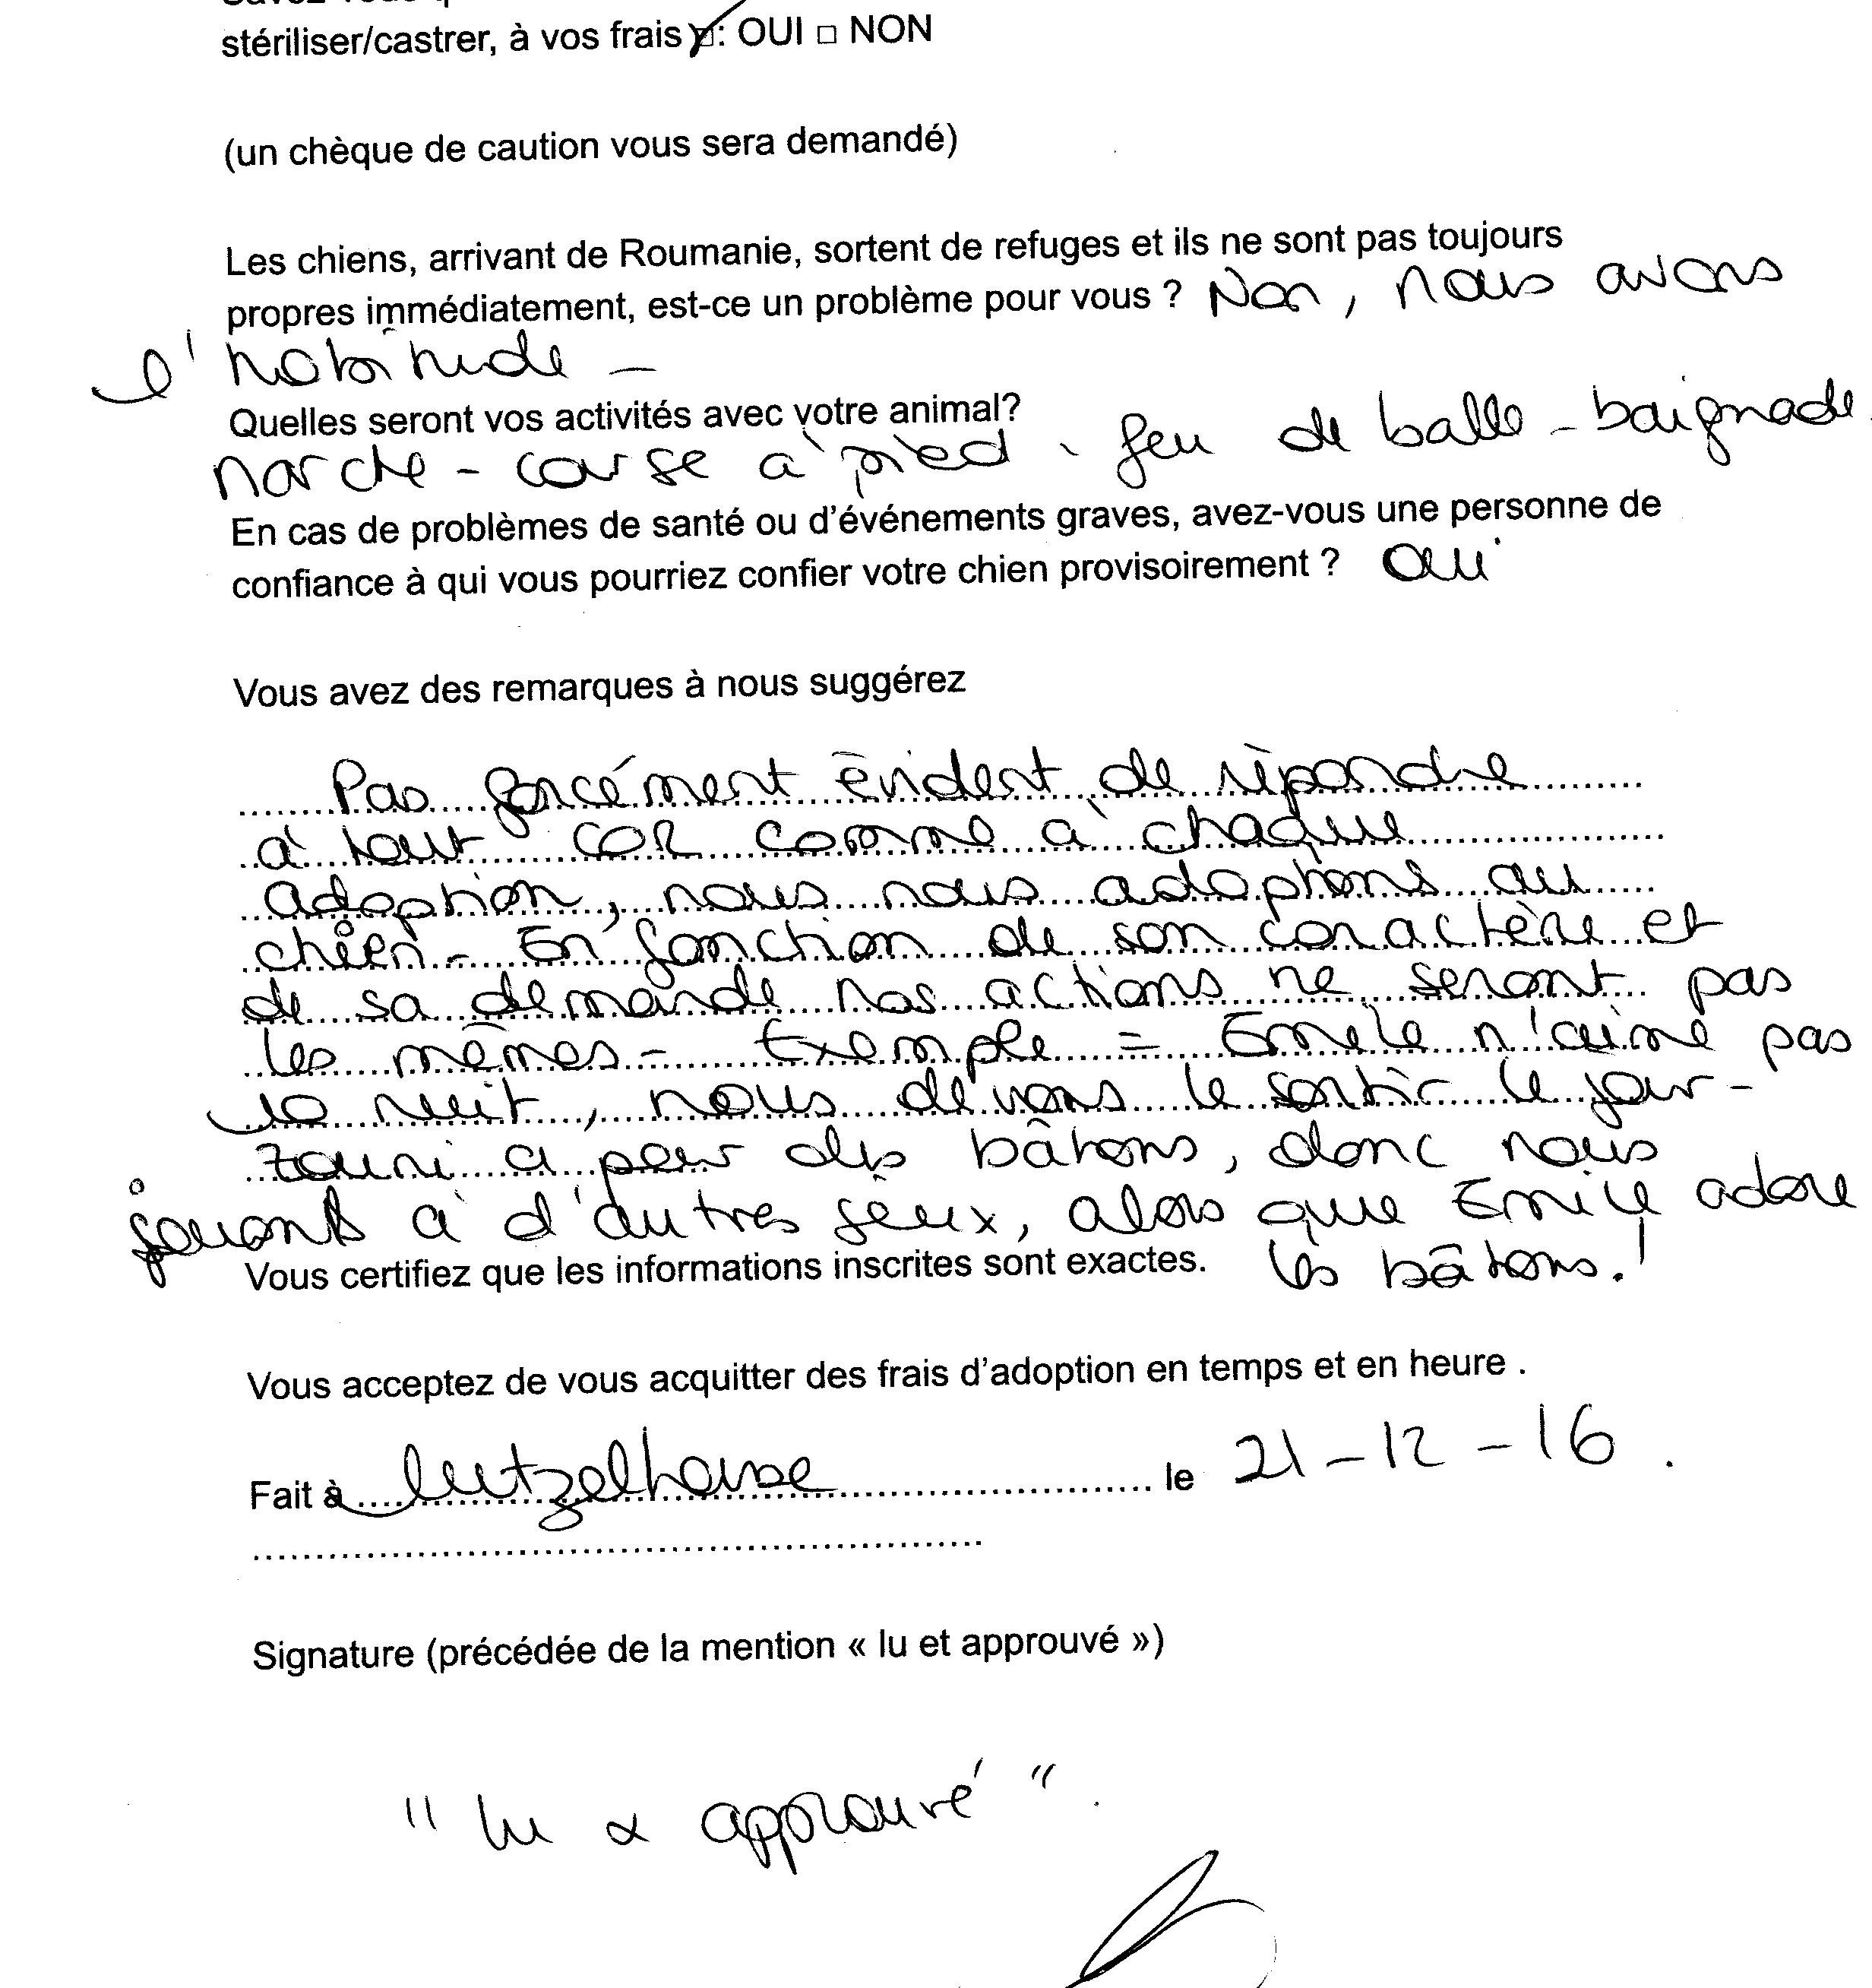 stériliser/castrer, à vos frais : OUI □ NON
(un chèque de caution vous sera demandé)
Les chiens, arrivant de Roumanie, sortent de refuges et ils ne sont pas toujours
propres immédiatement, est-ce un problème pour vous ? Non, nous avons
l'habitude -
Quelles seront vos activités avec votre animal?
marche - course à pied - jeu de balle - baignade.
En cas de problèmes de santé ou d'événements graves, avez-vous une personne de
confiance à qui vous pourriez confier votre chien provisoirement ? oui
Vous avez des remarques à nous suggérez
Pas forcément évident de répondre
à tout car comme à chaque
adoption, nous nous adaptons au
chien - En fonction de son caractère et
de sa demande nos actions ne seront pas
les mêmes - Exemple = Emile n'aime pas
la nuit, nous devons le sortir le jour -
Zouni a peur des bâtons, donc nous
jouons à d'autres jeux, alors que Emile adore
Vous certifiez que les informations inscrites sont exactes. les bâtons.!
Vous acceptez de vous acquitter des frais d'adoption en temps et en heure .
Fait à Lutzelhouse le 21-12-16.
Signature (précédée de la mention « lu et approuvé »)
"lu & approuvé".